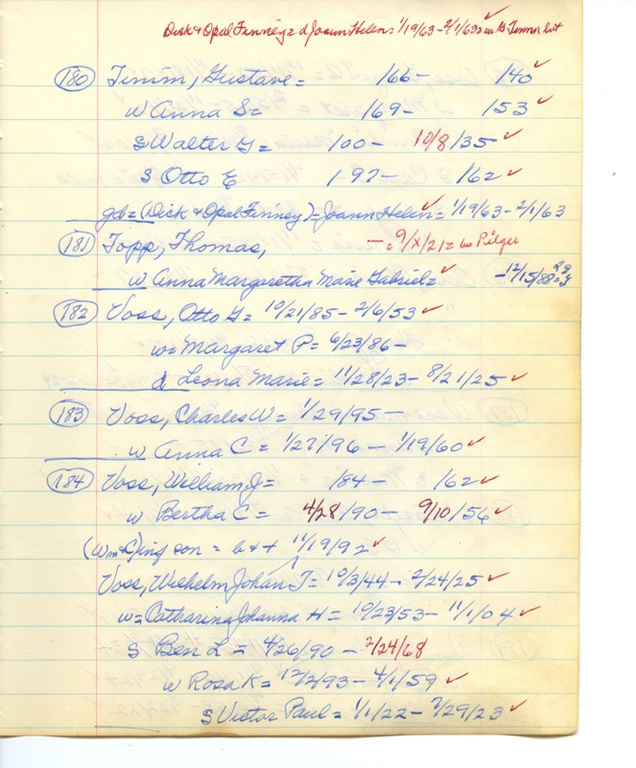 Dick & Opal Finney = d Joann Helen = 1/19/63 - 2/1/63 = in G Timm lot
180 Timm, Gustave = /66 - /40 ✓
w Anna S = /69 - /53 ✓
S Walter G = /00 - 10/8/35 ✓
S Otto E /97 - /62 ✓
gd = (Dick & Opal Finney) = Joann Helen = 1/19/63 - 2/1/63
181 Topp, Thomas, - = 9/X/21 = in Pilger
w Anna Margaretha Marie Gabriel = ✓ - 12/15/88 =
182 Voss, Otto G = 10/21/85 - 2/6/53 ✓
w = Margaret P = 6/23/86 -
d Leona Marie = 11/28/23 - 8/21/25 ✓
183 Voss, Charles W = 1/29/95 -
w Anna C = 1/27/96 - 1/19/60 ✓
184 Voss, William J = /84 - /62 ✓
w Bertha C = 4/28/90 - 9/10/56 ✓
(Wm & C) inf son = b & d 11/19/92 ✓
Voss, Wilhelm Johan J = 10/3/44 - 2/24/25 ✓
w = Catharina Johanna H = 10/23/53 - 11/1/04 ✓
S Ben L = 4/26/90 - 2/24/68
w Rosa K = 12/2/93 - 4/1/59 ✓
S Victor Paul = 1/1/22 - 7/29/23 ✓